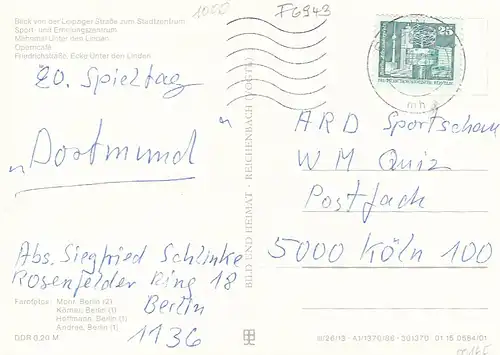 1050
F6943
Blick von der Leipziger Straße zum Stadtzentrum
Sport- und Erholungszentrum
Mahnmal Unter den Linden
Operncafé
Friedrichstraße, Ecke Unter den Linden
20. Spieltag
„Dortmund“
Abs. Siegfried Schlinke
Rosenfelder Ring 18
Berlin
1136
Farbfotos: Mohr, Berlin (2)
Körner, Berlin (1)
Hoffmann, Berlin (1)
Andree, Berlin (1)
DDR 0,20 M
BILD UND HEIMAT · REICHENBACH (VOGTL)
25
mh
ARD Sportschau
WM Quiz
Postfach
5000 Köln 100
III/26/13 A1/1376/86 301370 01 15 0594/01